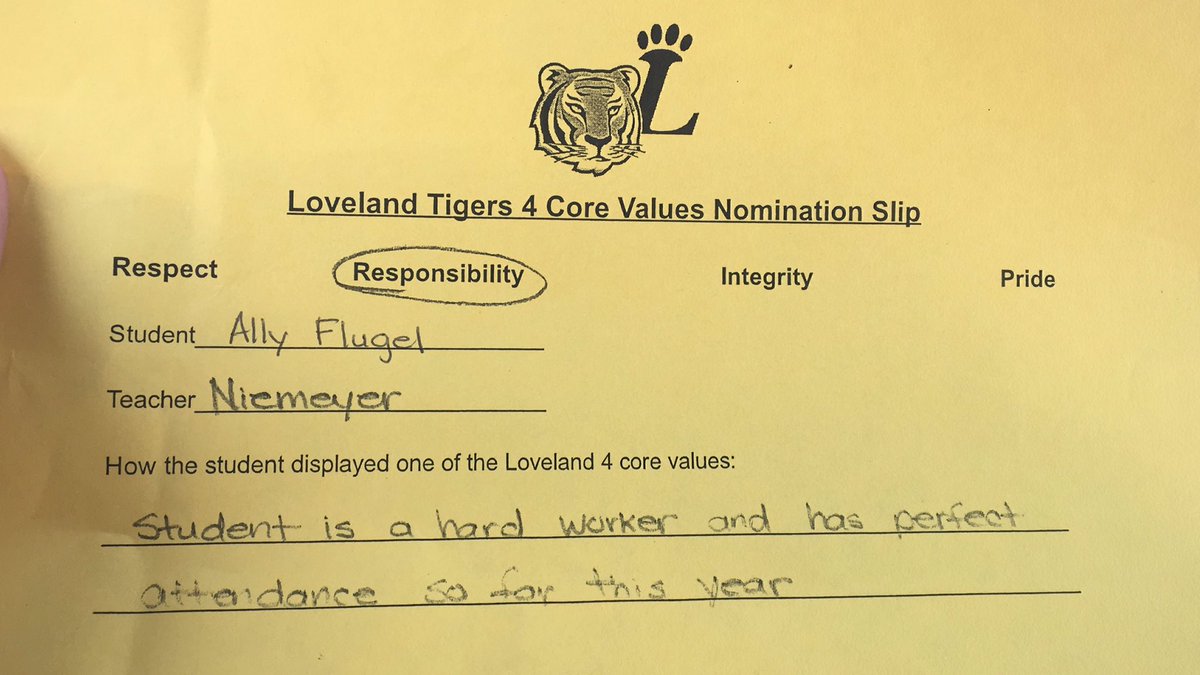 L
Loveland Tigers 4 Core Values Nomination Slip
Respect Responsibility Integrity Pride
Student Ally Flugel
Teacher Niemeyer
How the student displayed one of the Loveland 4 core values:
Student is a hard worker and has perfect
attendance so far this year